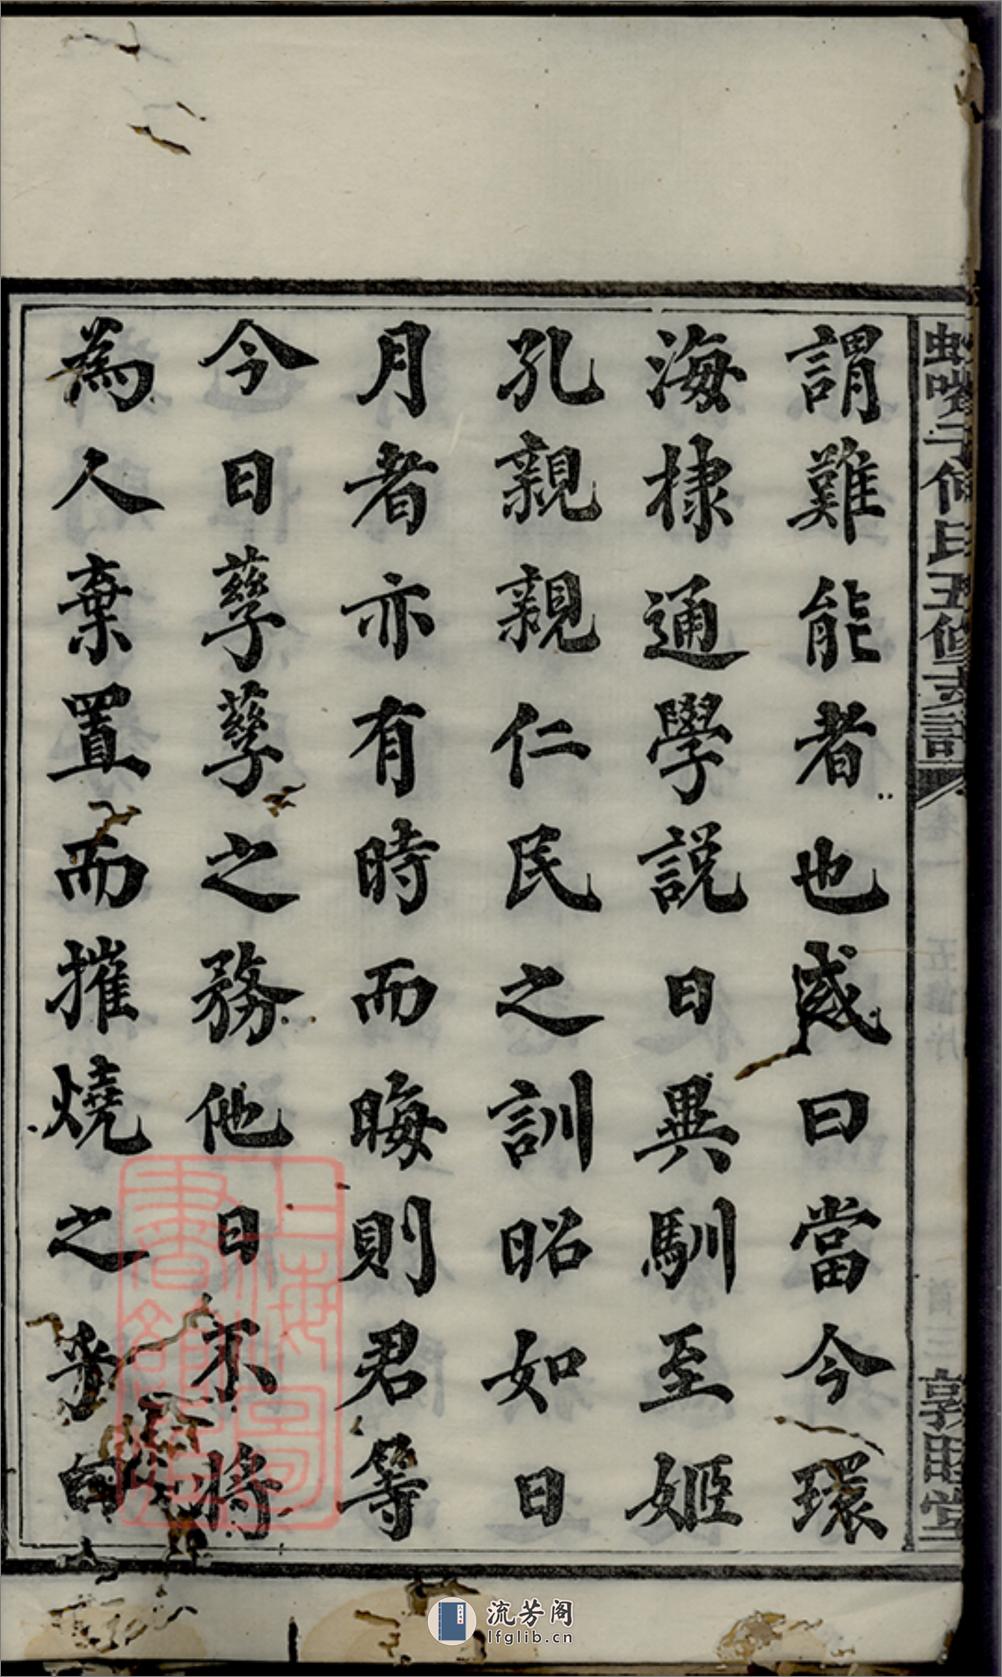 謂難能者也或曰當今環
海棣通學説日異馴至姬
孔親親仁民之訓昭如日
月者亦有時而晦則君等
今日孳孳之務他日不將
為人棄置而摧燒之乎曰
氏五修支譜
卷一
五修序
首三
敦睦堂
上海圖書館藏
流芳阁
lfglib.cn